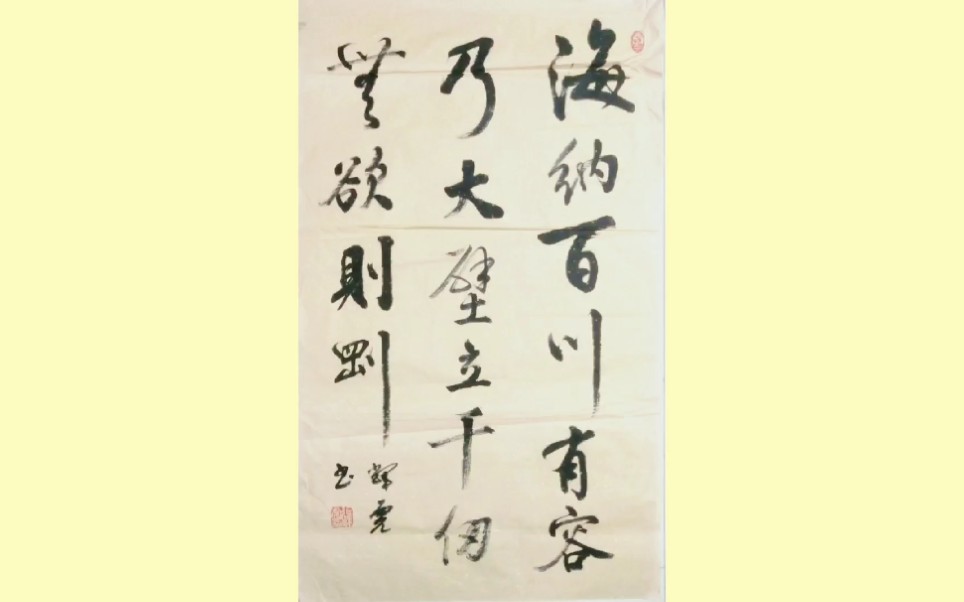 海纳百川有容
乃大壁立千仞
無欲则剛
书